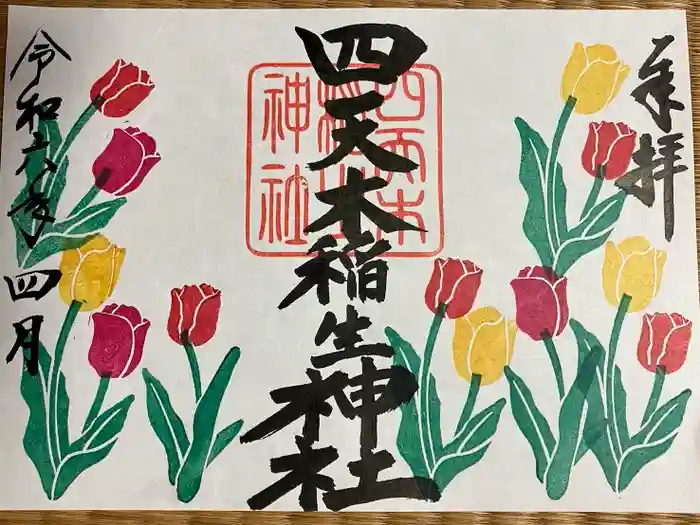 奉拝
四天木稲生神社
四天木
稲生
神社
令和六年
四月